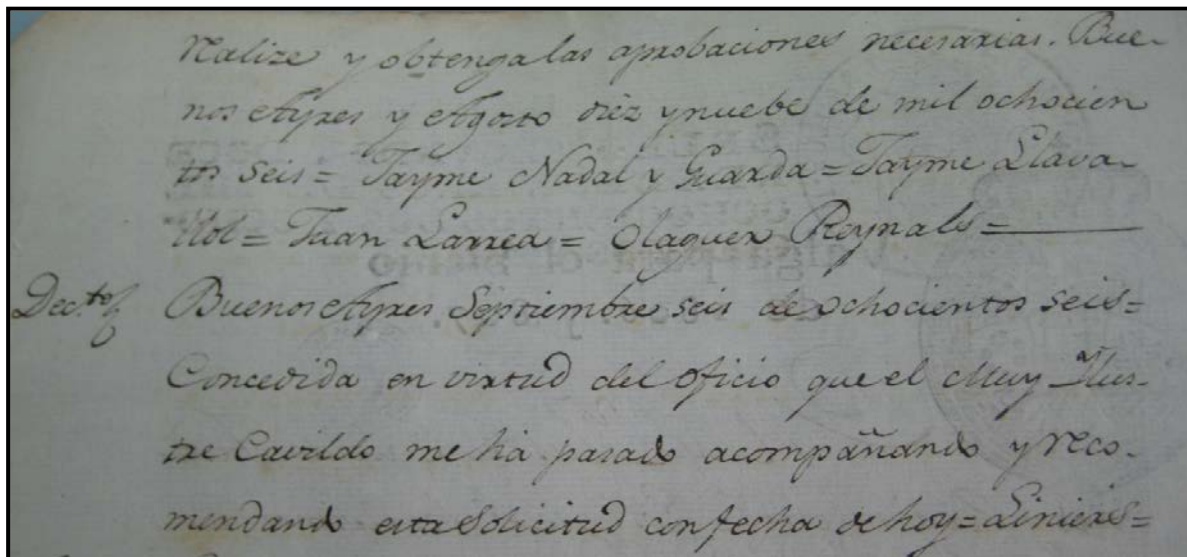 realize y obtenga las aprobaciones necesarias. Bue-
nos Ayres y Agosto diez y nuebe de mil ochocien
tos seis = Jayme Nadal y Guarda = Jayme Llava-
llol = Juan Larrea = Olaguer Reynals =
Dec.to Buenos Ayres Septiembre seis de ochocientos seis =
Concedida en virtud del oficio que el Muy Ilus-
tre Cavildo me ha pasado acompañando y reco-
mendando esta Solicitud con fecha de hoy = Liniers =